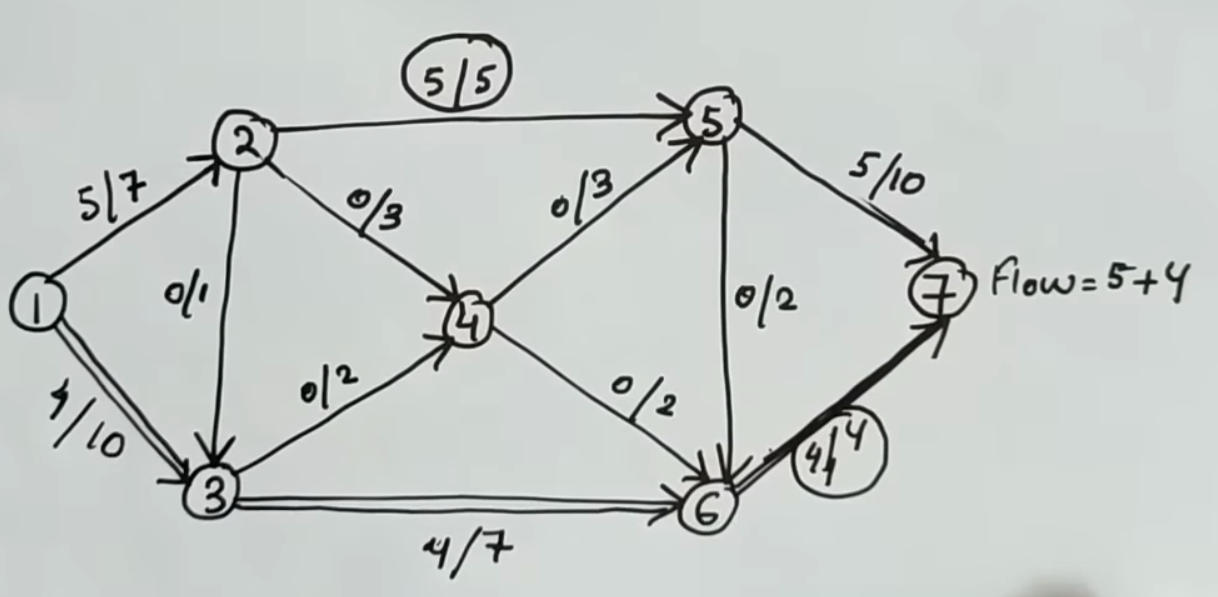 5/5
2
5
5/7
0/3
0/3
5/10
1
0/1
4
0/2
7
Flow = 5 + 4
4/10
0/2
0/2
4/4
3
6
4/7